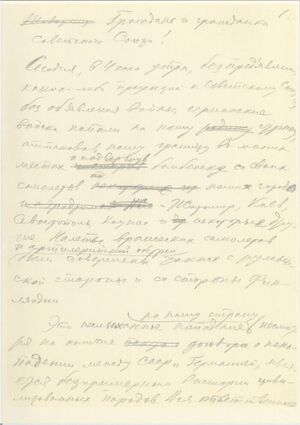 1.
Граждане и гражданки
Советского Союза!
Сегодня, в 4 часа утра, без предъявления
каких-либо претензий к Советскому Союзу,
без объявления войны, германские
войска напали на нашу страну,
атаковали нашу границу в многих
местах и подвергли бомбежке со своих
самолетов наши города
— Житомир, Киев,
Севастополь, Каунас и некоторые дру-
гие. Налеты вражеских самолетов
и артиллерийский обстрел
были совершены также с румын-
ской стороны и со стороны Фин-
ляндии
Это неслыханное нападение на нашу страну, несмот-
ря на наличие договора о нена-
падении между СССР и Германией, явля-
ется беспримерным в истории циви-
лизованных народов. Вся ответственность